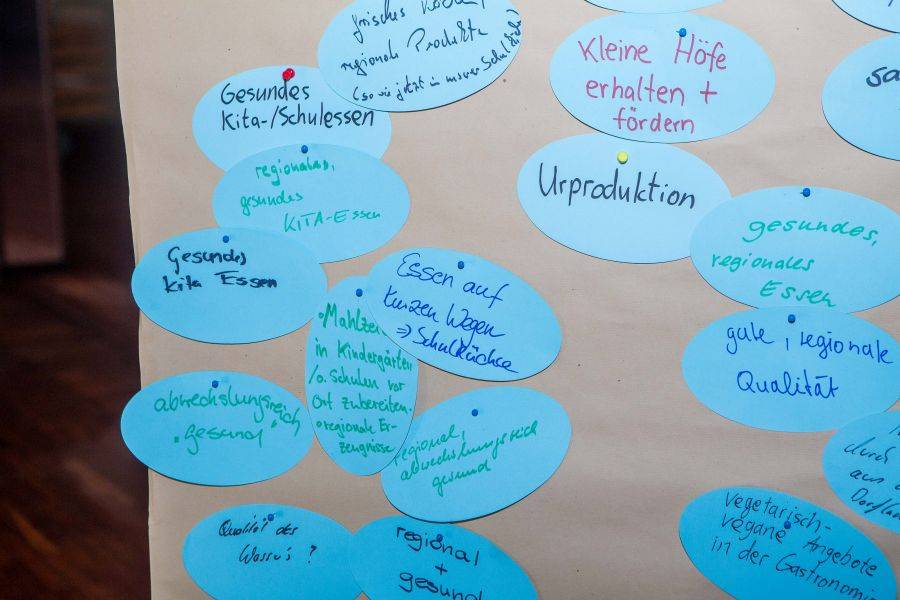 frisches Kochen,
regionale Produkte
(so wie jetzt in unserer Schulküche)
Gesundes
Kita-/Schulessen
regionales,
gesundes
KITA-Essen
Gesundes
Kita Essen
• Mahlzei
in Kindergärten
/o. Schulen vor
Ort zubereiten.
• regionale Er-
zeugnisse
Essen auf
kurzen Wegen
⇒ Schulküche
abwechslungsreich
"gesund"
regional,
abwechslungsreich
gesund
Qualität des
Wassers ?
regional
+
gesund
Kleine Höfe
erhalten +
fördern
Urproduktion
sa
gesundes,
regionales
Essen
gute, regionale
Qualität
durch
aus d
Dorfla
vegetarisch-
vegane Angebote
in der Gastronomie